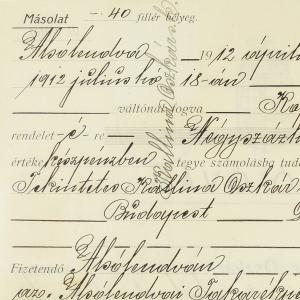 Másolat -.40 fillér bélyeg.
Alsólendva 1912 áprili
1912 julius hó 18-án
váltónál fogva Ka
rendelet-é-re Négyszázh
értéke készpénzben tegye számolásba tud
Tekintetes Kallina Oszkár
Budapest
Fizetendő Alsólendván
az. Alsólendvai Takarékp
Kallina Oszkár